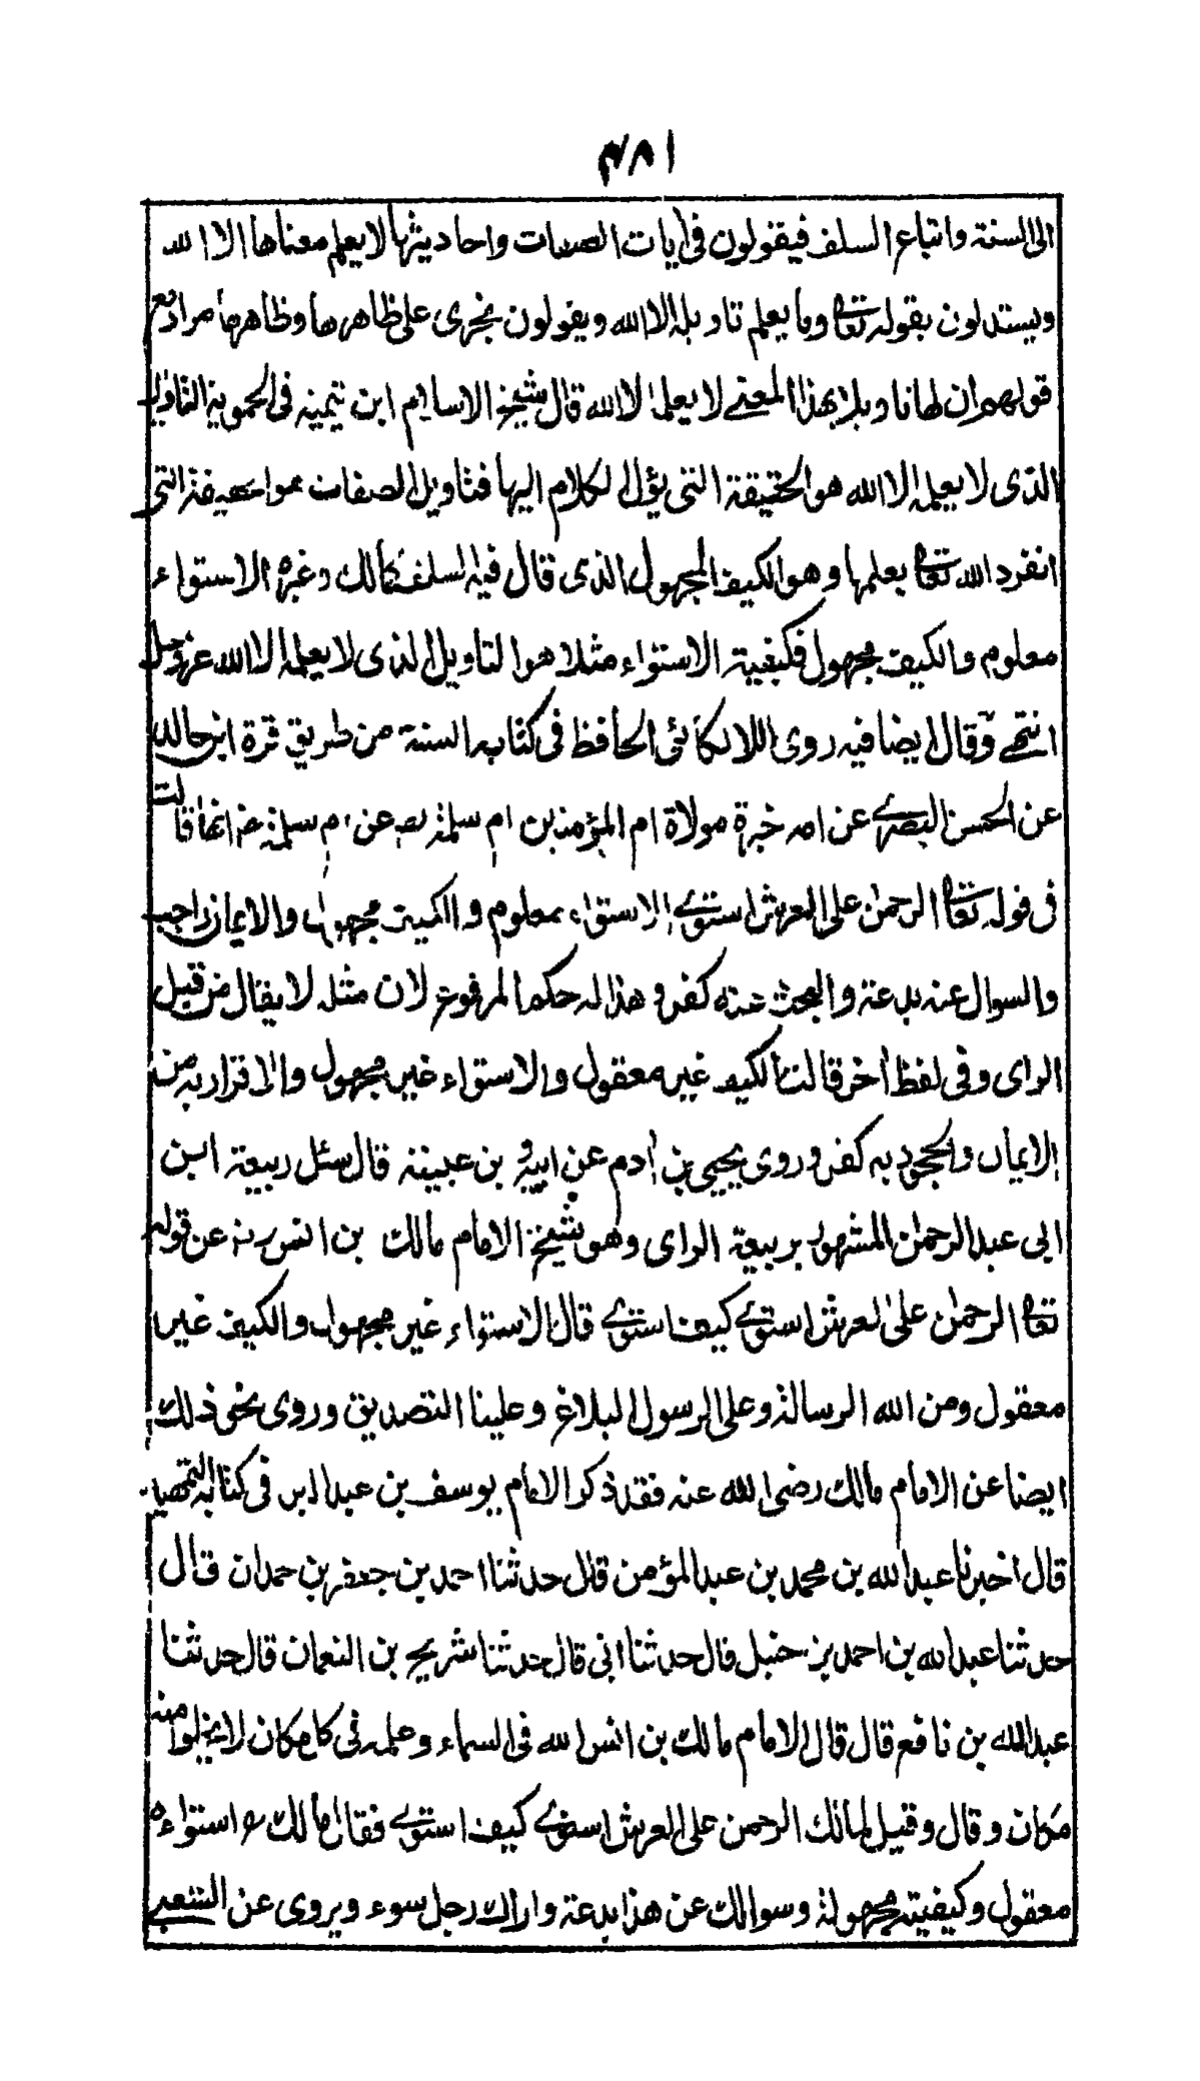 ٤٨١
الى السنة واتباع السلف فيقولون فى ايات الصفات واحاديثها لا يعلم معناها الا الله
ويستدلون بقوله تعا وما يعلم تاويله الا الله ويقولون تجرى على ظاهرها وظاهرها مراد مع
قولهم ان لها تاويلا بهذا المعنے لا يعلمه الا الله قال شيخ الاسلام ابن تيمية فى الحموية التاويل
الذى لا يعلمه الا الله هو الحقيقة التى يؤل الكلام اليها فتاويل الصفات هو الحقيقة التى
انفرد الله تعا بعلمها وهو الكيف المجهول الذى قال فيه السلف كمالك وغيره الاستواء
معلوم والكيف مجهول فكيفية الاستواء مثلا هو التاويل الذى لا يعلمه الا الله عز وجل
انتهے وقال ايضا فيه روى اللالكائى الحافظ فى كتابه السنة من طريق قرة ابن خالد
عن الحسن البصرے عن امه خيرة مولاة ام المؤمنين ام سلمة عن ام سلمة انها قالت
فى قوله تعا الرحمن على العرش استوے الاستواء معلوم والكيف مجهول والايمان به واجب
والسوال عنه بدعة والبحث عنه كفر وهذا له حكم المرفوع لان مثله لا يقال من قبيل
الراى وفى لفظ اخر قالت الكيف غير معقول والاستواء غير مجهول والاقرار به من
الايمان والجحود به كفر وروى يحيى بن ادم عن ابيه و بن عيينة قال سئل ربيعة ابن
ابى عبد الرحمن المشهور بربيعة الراى وهو شيخ الامام مالك بن انس عن قوله
تعا الرحمن على العرش استوے كيف استوے قال الاستواء غير مجهول والكيف غير
معقول ومن الله الرسالة وعلى الرسول البلاغ وعلينا التصديق وروى نحو ذلك
ايضا عن الامام مالك رضى الله عنه فقد ذكر الامام يوسف بن عبد البر فى كتابه التمهيد
قال اخبرنا عبد الله بن محمد بن عبد المؤمن قال حدثنا احمد بن جعفر بن حمدان قال
حدثنا عبد الله بن احمد بن حنبل قال حدثنا ابى قال حدثنا شريح بن النعمان قال حدثنا
عبد الله بن نافع قال قال الامام مالك بن انس الله فى السماء وعلمه فى كل مكان لا يخلوا منه
مكان وقال وقيل لمالك الرحمن على العرش استوے كيف استوے فقال مالك استواءه
معقول وكيفيته مجهولة وسوالك عن هذا بدعة واراك رجل سوء ويروى عن الشعبے